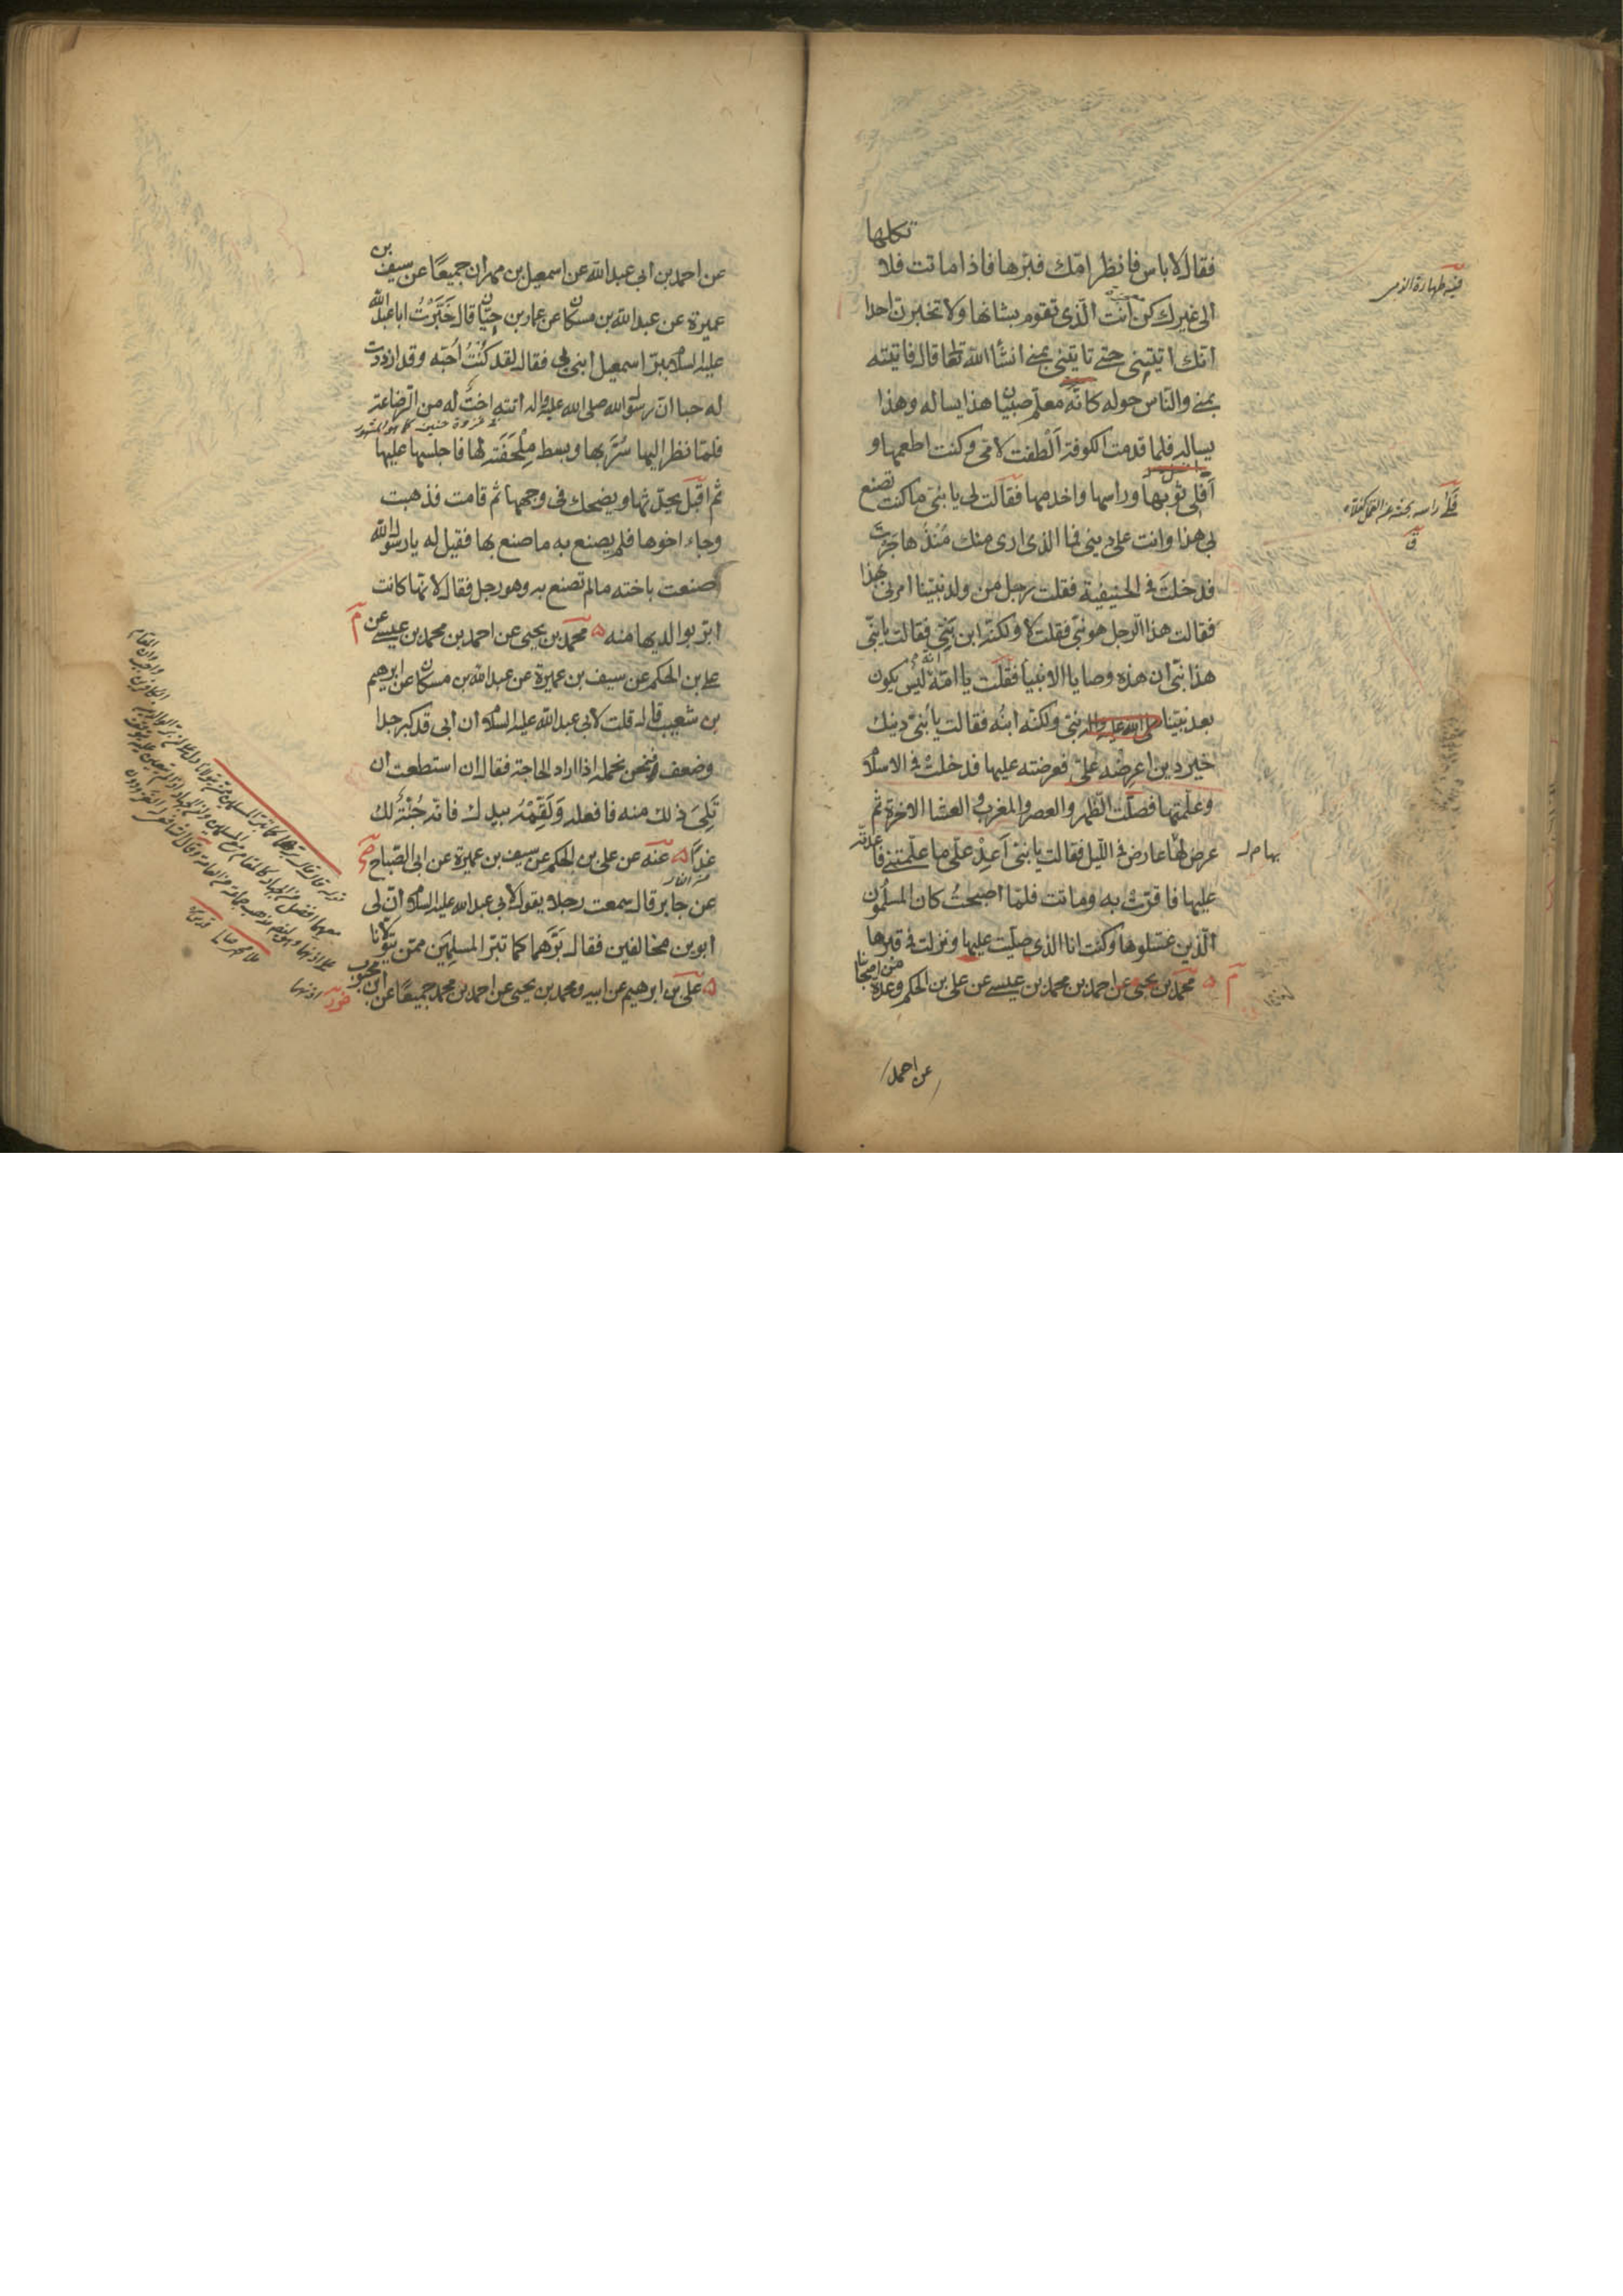 فقال لا باس فانظر امّك فبرّها فاذا ماتت فلا تكلها
الى غيرك كن انت الّذي تقوم بشانها ولا تخبرن احدا
انّك اتيتني حتى تاتيني بمنى انشأ الله قال فاتيته
بمنى والناس حوله كانّه معلّم صبيان هذا يساله وهذا
يساله فلما قدمت الكوفة الطفت لامّي وكنت اطعمها و
أفلي ثوبها وراسها واخدمها فقالت لي يا بنيّ ما كنت تصنع
بي هذا وانت على ديني فما الذي ارى منك مُنذُ هاجرت
فدخلت في الحنيفية فقلت رجل من ولد نبيّنا امرني بهذا
فقالت هذا الرجل هو نبيّ فقلت لا ولكنّه ابن نبيّ فقالت يا بنيّ
هذا نبيّ ان هذه وصايا الانبياء فقلت يا امّه انّه ليس يكون
بعد نبيّنا صلى الله عليه واله نبيّ ولكنّه ابنه فقالت يا بُنيّ دينك
خير دين اعرضه عليّ فعرضته عليها فدخلت في الاسلام
وعلّمتها فصلّت الظهر والعصر والمغرب والعشا الاخرة ثم
عرض لها عارض في الليل فقالت يا بنيّ اَعِدْ علّي ما علّمتني فاعدته
عليها فاقرّت به وماتت فلمّا اصبحتُ كان المسلمون
الّذين غسّلوها وكنت انا الذي صليت عليها ونزلت في قبرها
م محمّد بن يحيى عن احمد بن محمد بن عيسى عن علي بن الحكم وعدة من اصحابنا
عن احمد
فيه طهارة الذمي
فلى راسه بحثه عن القمل كفلاه
ق
بها م ل
عن احمد بن ابي عبد الله عن اسمعيل بن مهران جميعًا عن سيف بن
عميرة عن عبد الله بن مسكان عن عمار بن حيّان قال خَبَّرْتُ ابا عبد الله
عليه السلام ببرّ اسمعيل ابني بي فقال لقد كنتُ اُحبّه وقد ازددت
له حبا ان رسول الله صلى الله عليه واله اتته اختٌ له من الرضاعة
فلمّا نظر اليها سُرّ بها وبسط مِلْحَفَته لها فاجلسها عليها
ثم اقبل يحدّثها ويضحك في وجهها ثم قامت فذهبت
وجاء اخوها فلم يصنع به ما صنع بها فقيل له يا رسول الله
صنعت باخته ما لم تصنع به وهو رجل فقال لانّها كانت
ابرّ بوالديها منه محمّد بن يحيى عن احمد بن محمد بن عيسى عن م
علي بن الحكم عن سيف بن عميرة عن عبد الله بن مسكان عن ابرهيم
بن شعيب قال قلت لابي عبد الله عليه السلام ان ابي قد كبر جدا
وضعف فنحن نحمله اذا اراد الحاجة فقال ان استطعت ان
تَلِيَ ذلك منه فافعل وَلَقِّمْهُ بيدك فانه جُنّة لك
غدًا عنه عن علي بن الحكم عن سيف بن عميرة عن ابي الصباح
عن جابر قال سمعت رجلا يقول لابي عبد الله عليه السلام ان لي
ابوين مخالفين فقال برّهما كما تبرّ المسلمين ممّن يتولانا
علي بن ابرهيم عن ابيه ومحمد بن يحيى عن احمد بن محمد جميعًا عن ابن محبوب
غزوة حنين كما هو المشهور